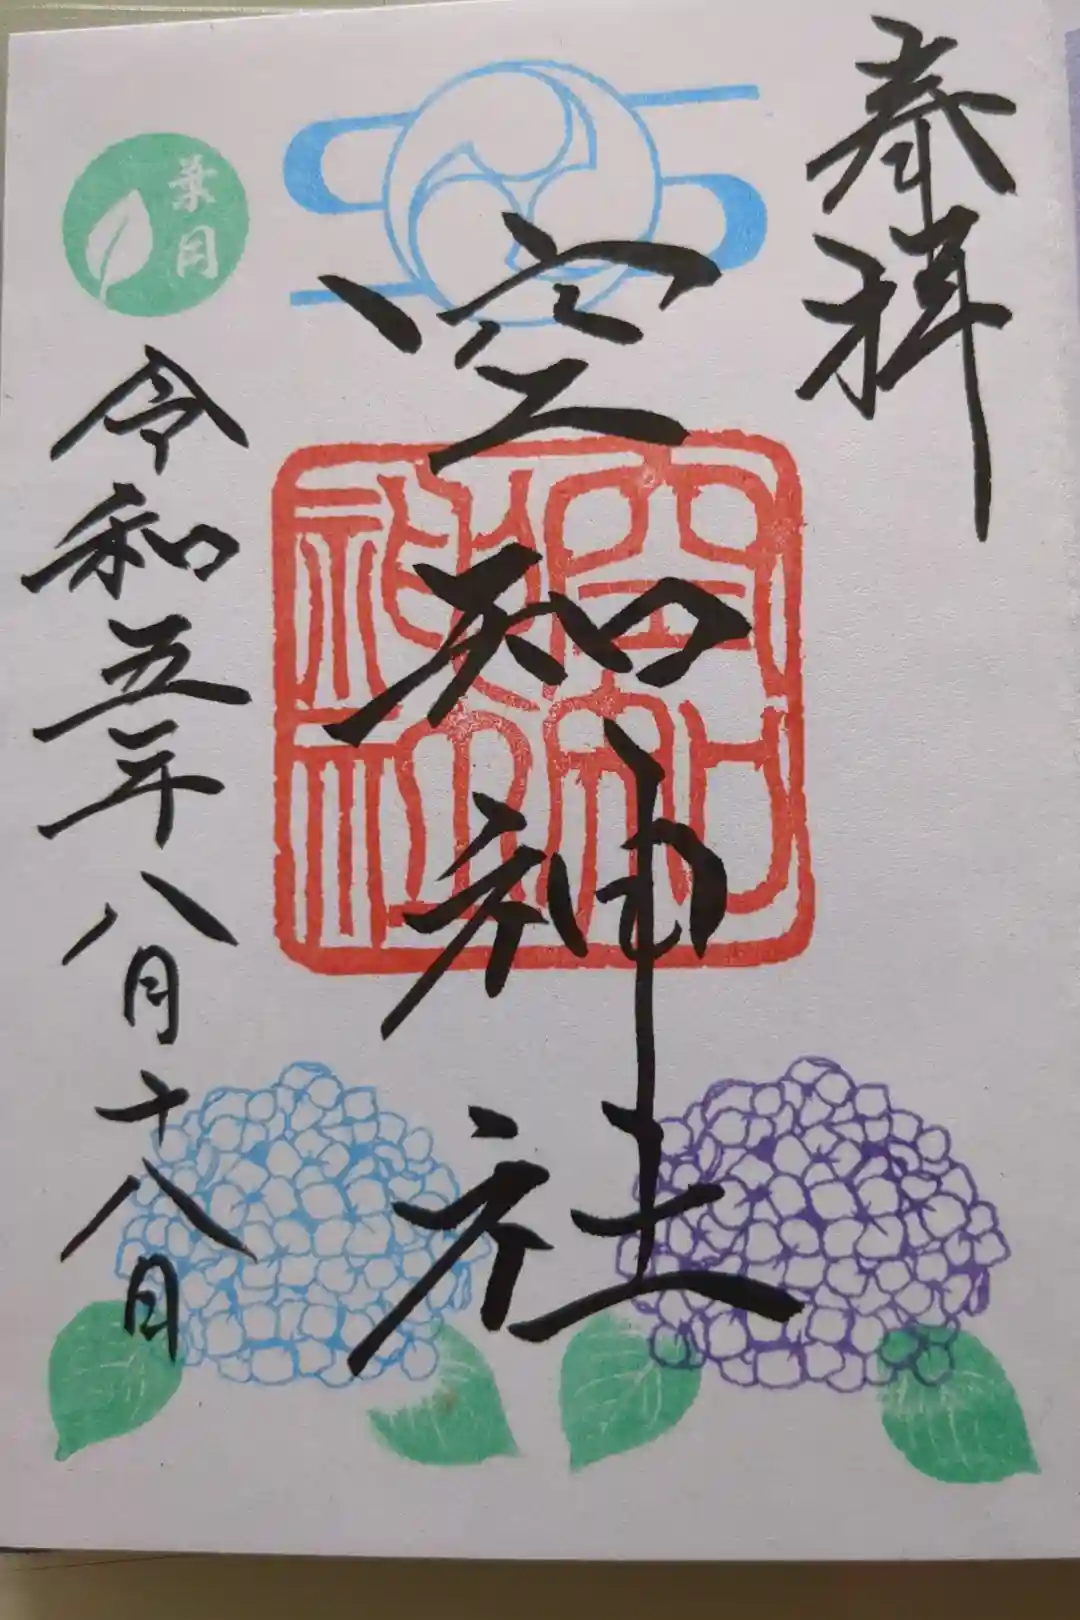 奉拝
空知神社
空知神社
葉月
令和五年八月十八日